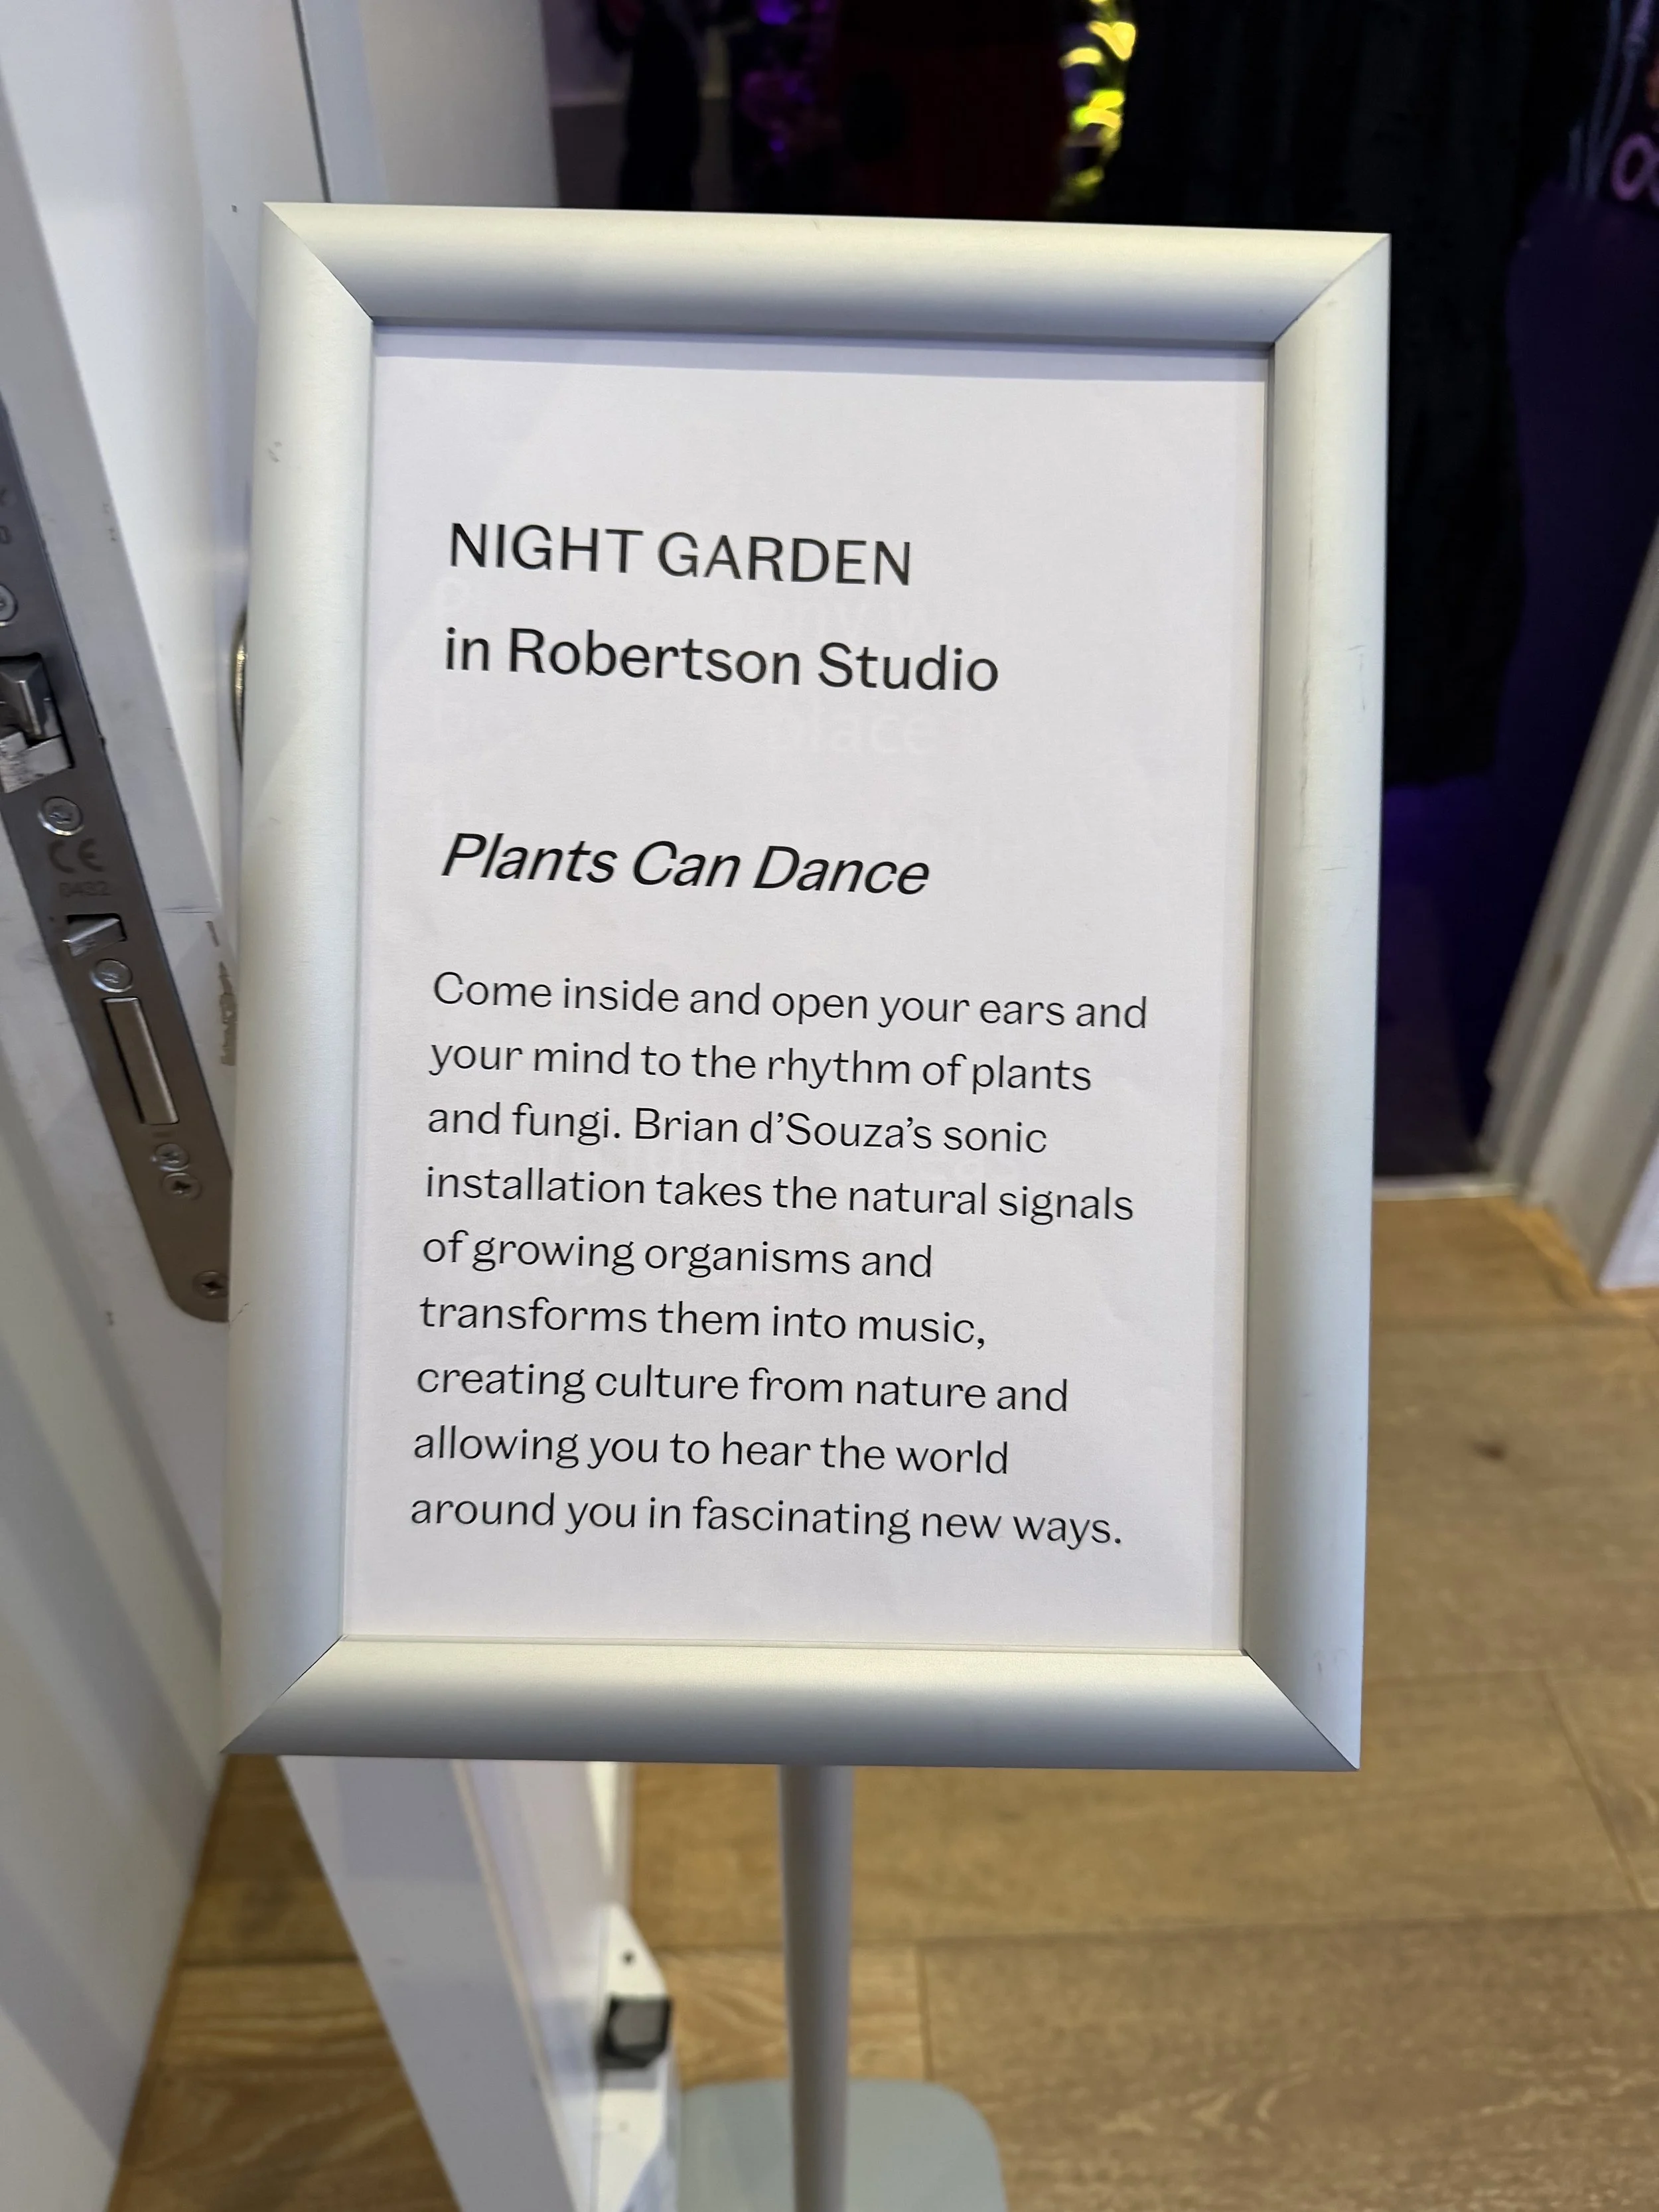 NIGHT GARDEN
in Robertson Studio
Plants Can Dance
Come inside and open your ears and
your mind to the rhythm of plants
and fungi. Brian d’Souza’s sonic
installation takes the natural signals
of growing organisms and
transforms them into music,
creating culture from nature and
allowing you to hear the world
around you in fascinating new ways.
CE
0432